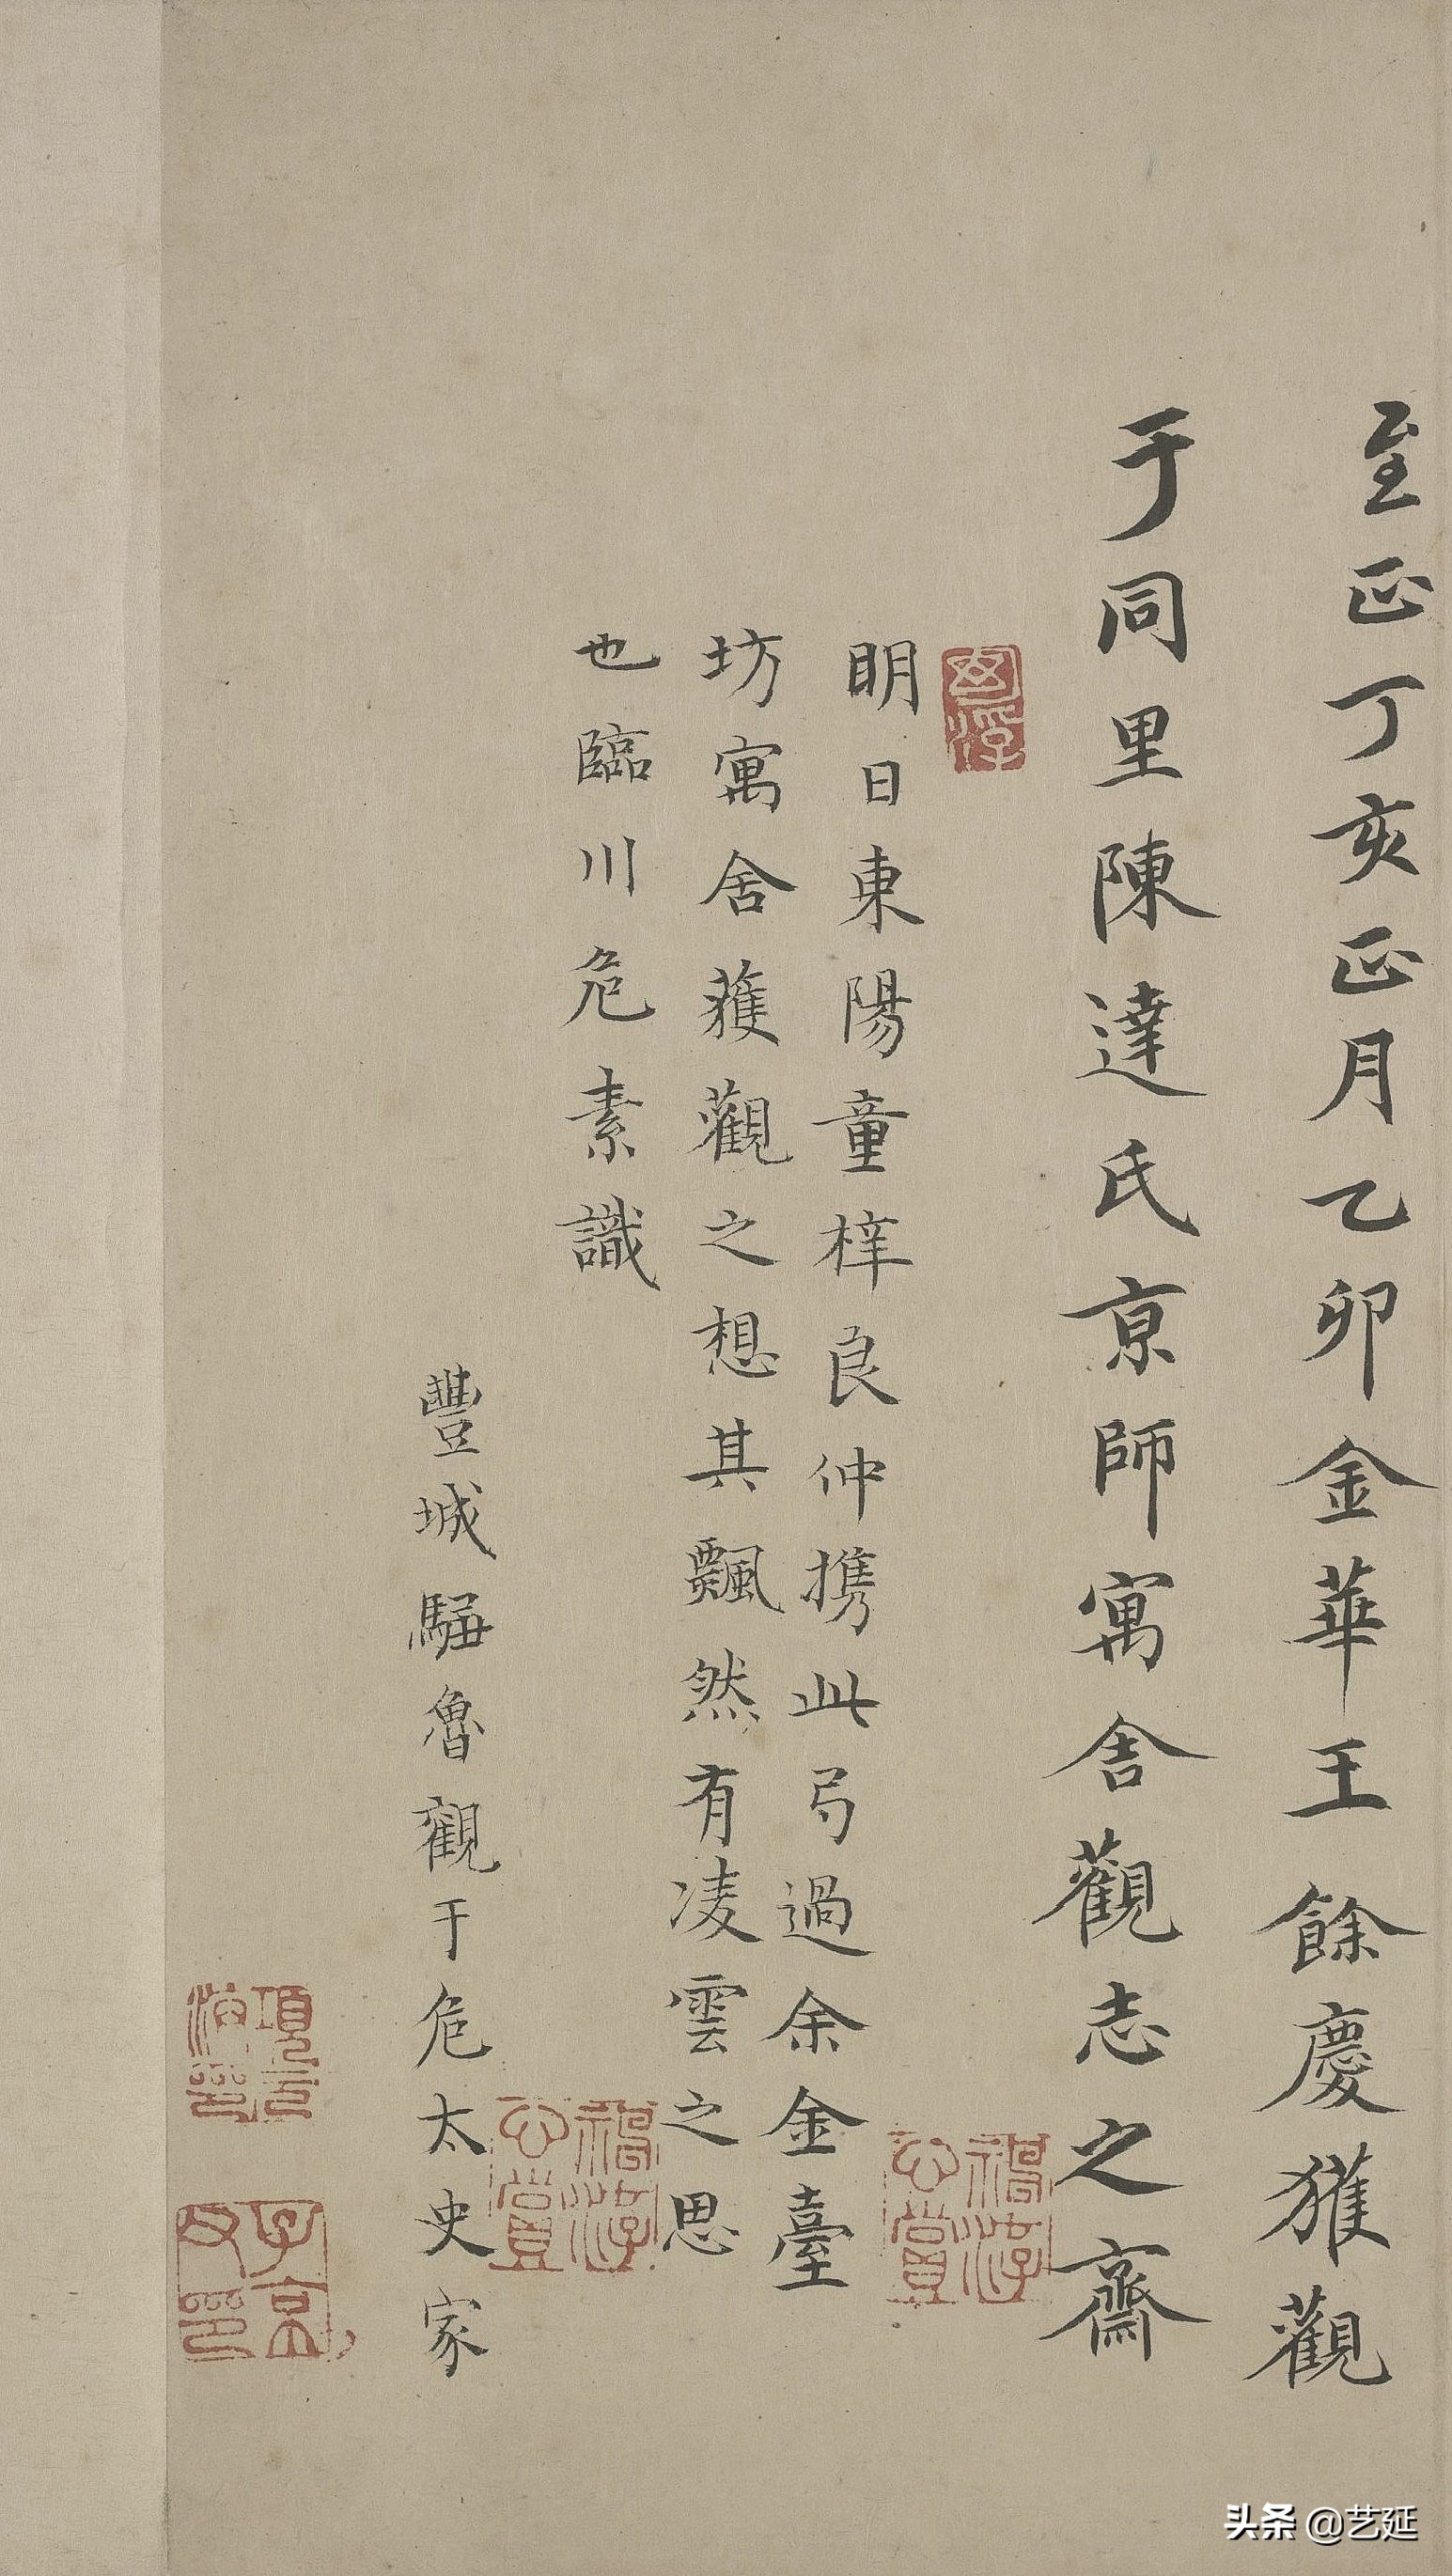 至正丁亥正月乙卯金華王餘慶獲觀
于同里陳達氏京師寓舍觀志之齋
明日東陽童梓良仲携此弓過余金臺
坊寓舍蒦觀之想其飄然有凌雲之思
也臨川危素識
豐城騳魯觀于危太史家
項元
汴印
子京
父印
头条 @艺延